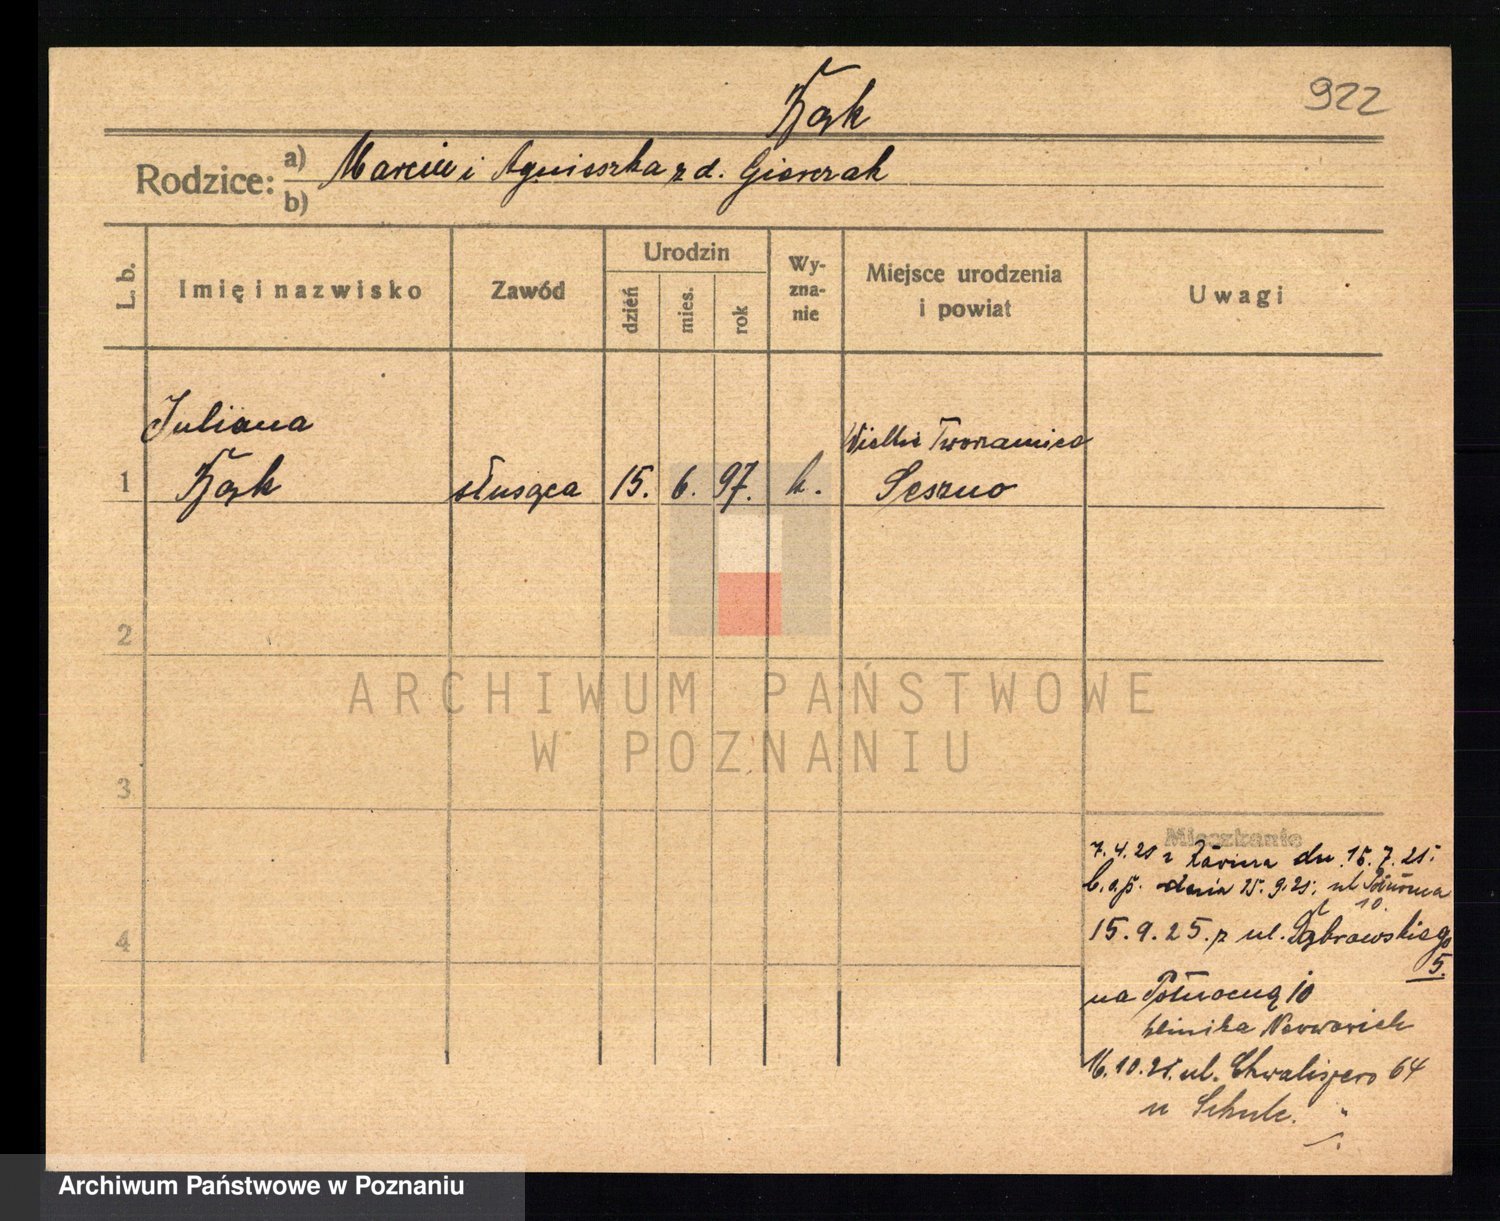 922
Bąk
Rodzice: a) Marcin i Agnieszka z d. Gierczak
b)
L. b. Imię i nazwisko Zawód Urodzin dzień mies. rok Wy-zna-nie Miejsce urodzenia i powiat Uwagi
Juliana Wielkie
1 Bąk służąca 15. 6. 97. k.
2
3
4
Mieszkanie
7.4.25 z dn. 15.7.25.
dnia 15.9.25. ul. Północna
10.
15.9.25. z ul. Dąbrowskiego
5.
na Północną 10
klinika
16.10.25. ul. Chwaliszewo 64
u
ARCHIWUM PAŃSTWOWE
W POZNANIU
Archiwum Państwowe w Poznaniu